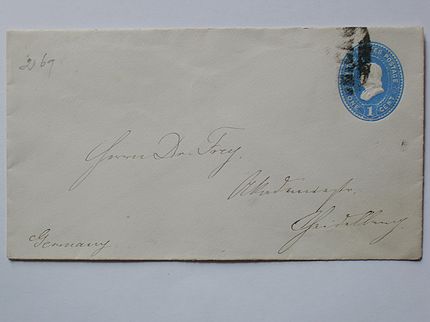 2 69
POSTAGE
ONE 1 CENT
Herrn Dr. Frey.
Akademiestr.
Heidelberg
Germany.